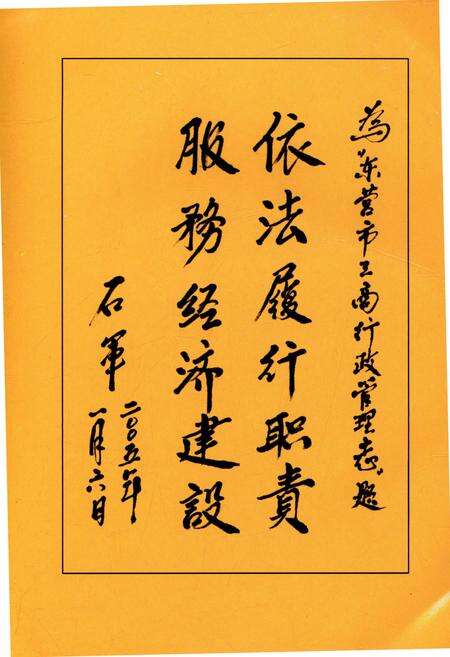 為《东营市工商行政管理志》题
依法履行职责
服務经济建設
石军
二〇〇五年
一月六日